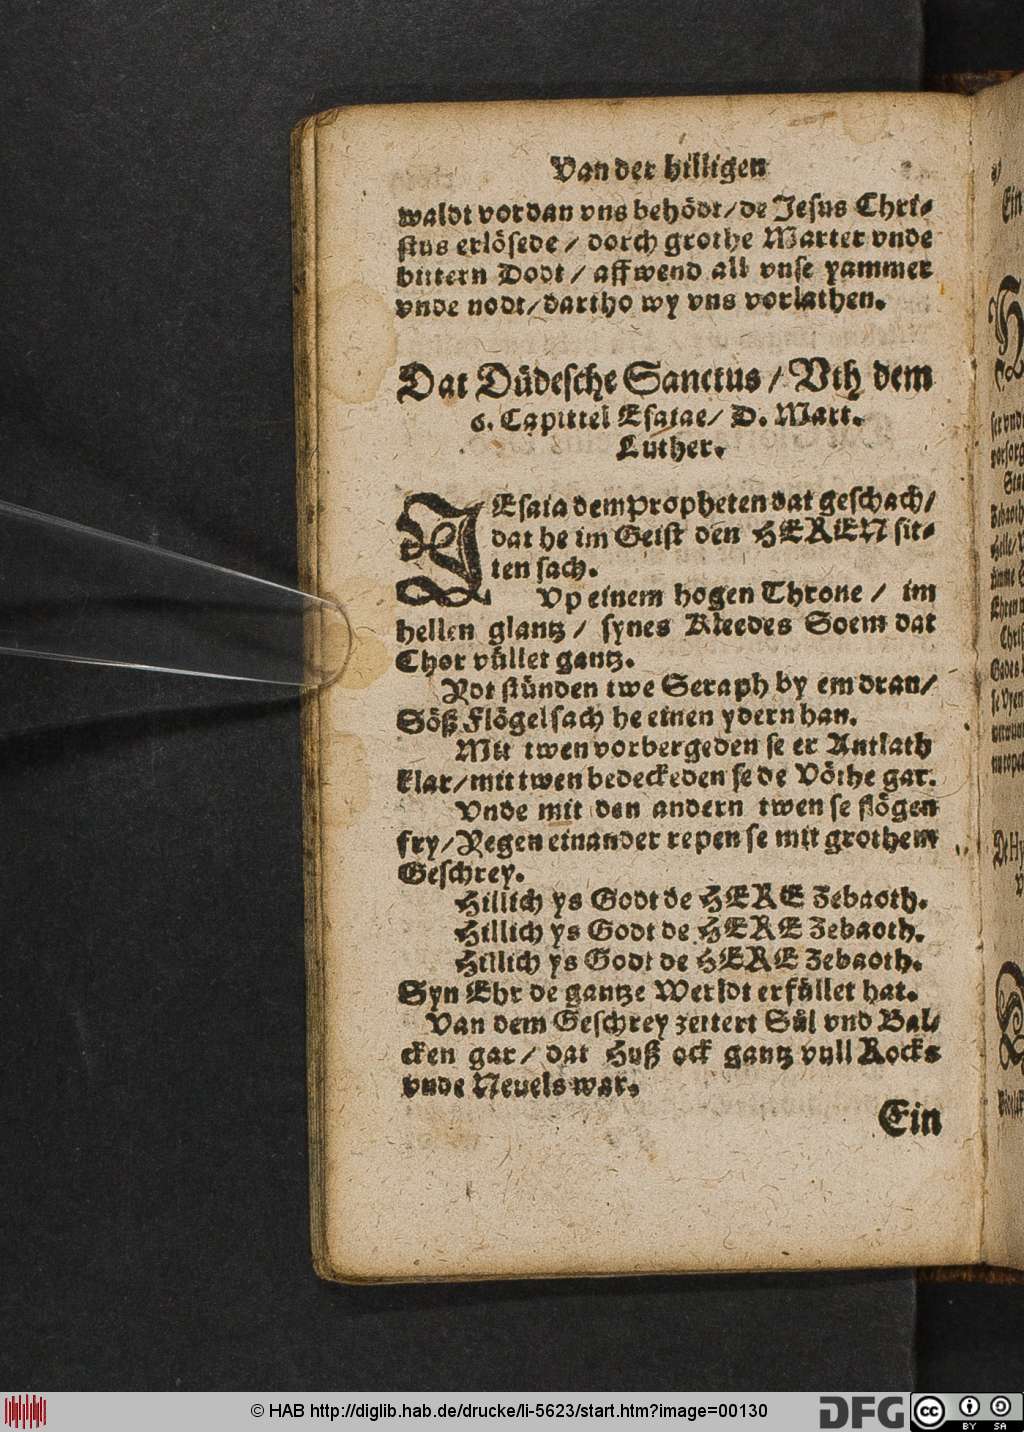 Van der hilligen
waldt vordan vns behödt/ de Jesus Chri-
stus erlösede / dorch grothe Marter vnde
bittern Dodt / affwend all vnse yammer
vnde nodt/ dartho wy vns vorlathen.
Dat Düdesche Sanctus / Vth dem
6. Capittel Esaiae/ D. Mart.
Luther.
JEsaia dem Propheten dat geschach/
dat he im Geist den HEREN sit-
ten sach.
Vp einem hogen Throne / im
hellen glantz / synes Kleedes Soem dat
Chor vüllet gantz.
Dot stünden twe Seraph by em dran/
Söß Flögel sach he einen ydern han.
Mit twen vorbergeden se er Antlath
klar/ mit twen bedeckeden se de Vöthe gar.
Vnde mit den andern twen se flögen
fry/ Jegen einander repen se mit grothem
Geschrey.
Hillich ys Godt de HERE Zebaoth.
Hillich ys Godt de HERE Zebaoth.
Hillich ys Godt de HERE Zebaoth.
Syn Ehr de gantze Werldt erfüllet hat.
Van dem Geschrey zettert Sül vnd Bal-
cken gar/ dat Huß ock gantz vull Rocks
vnde Neuels war.
Ein
© HAB http://diglib.hab.de/drucke/li-5623/start.htm?image=00130
DFG
cc BY SA